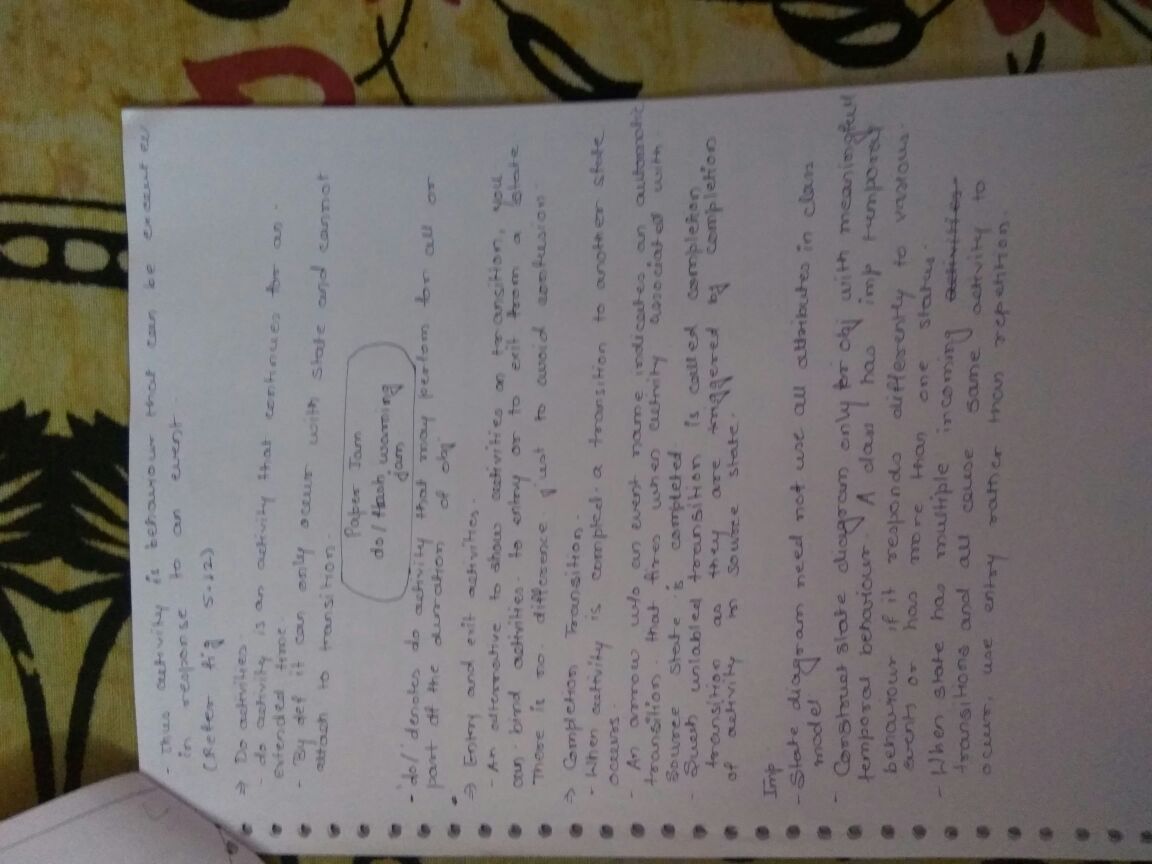 - Thus activity is behaviour that can be execut ed
in response to an event.
(Refer fig 5.12)
⇒ Do activities
- do activity is an activity that continues for an
extended time.
- By def it can only occur with state and cannot
attach to transition.
Paper Jam
do/ flash warning
jam
- 'do/' denotes do activity that may perfom for all or
part off the duration of obj
⇒ Entry and exit activities.
- An alternative to show activities on transition, you
can bind activities to entry or to exit from a state
There is no difference just to avoid confusion
⇒ Completion Transition.
- When activity is complted a transition to another state
occurs.
- An arrow w/o an event name indicates an automatic
transition that fires when activity associated with
source state is completed.
- Such unlabled transition is called completion
transition as they are triggered by completion
of activity in source state.
Imp
- State diagram need not use all attributes in class
model
- Construct state diagram only for obj with meaningfull
temporal behaviour. A class has imp temporay
behaviour if it responds differently to various
events or has more than one states.
- When state has multiple incoming activities
transitions and all cause same activity to
occur, use entry rather than repetition.